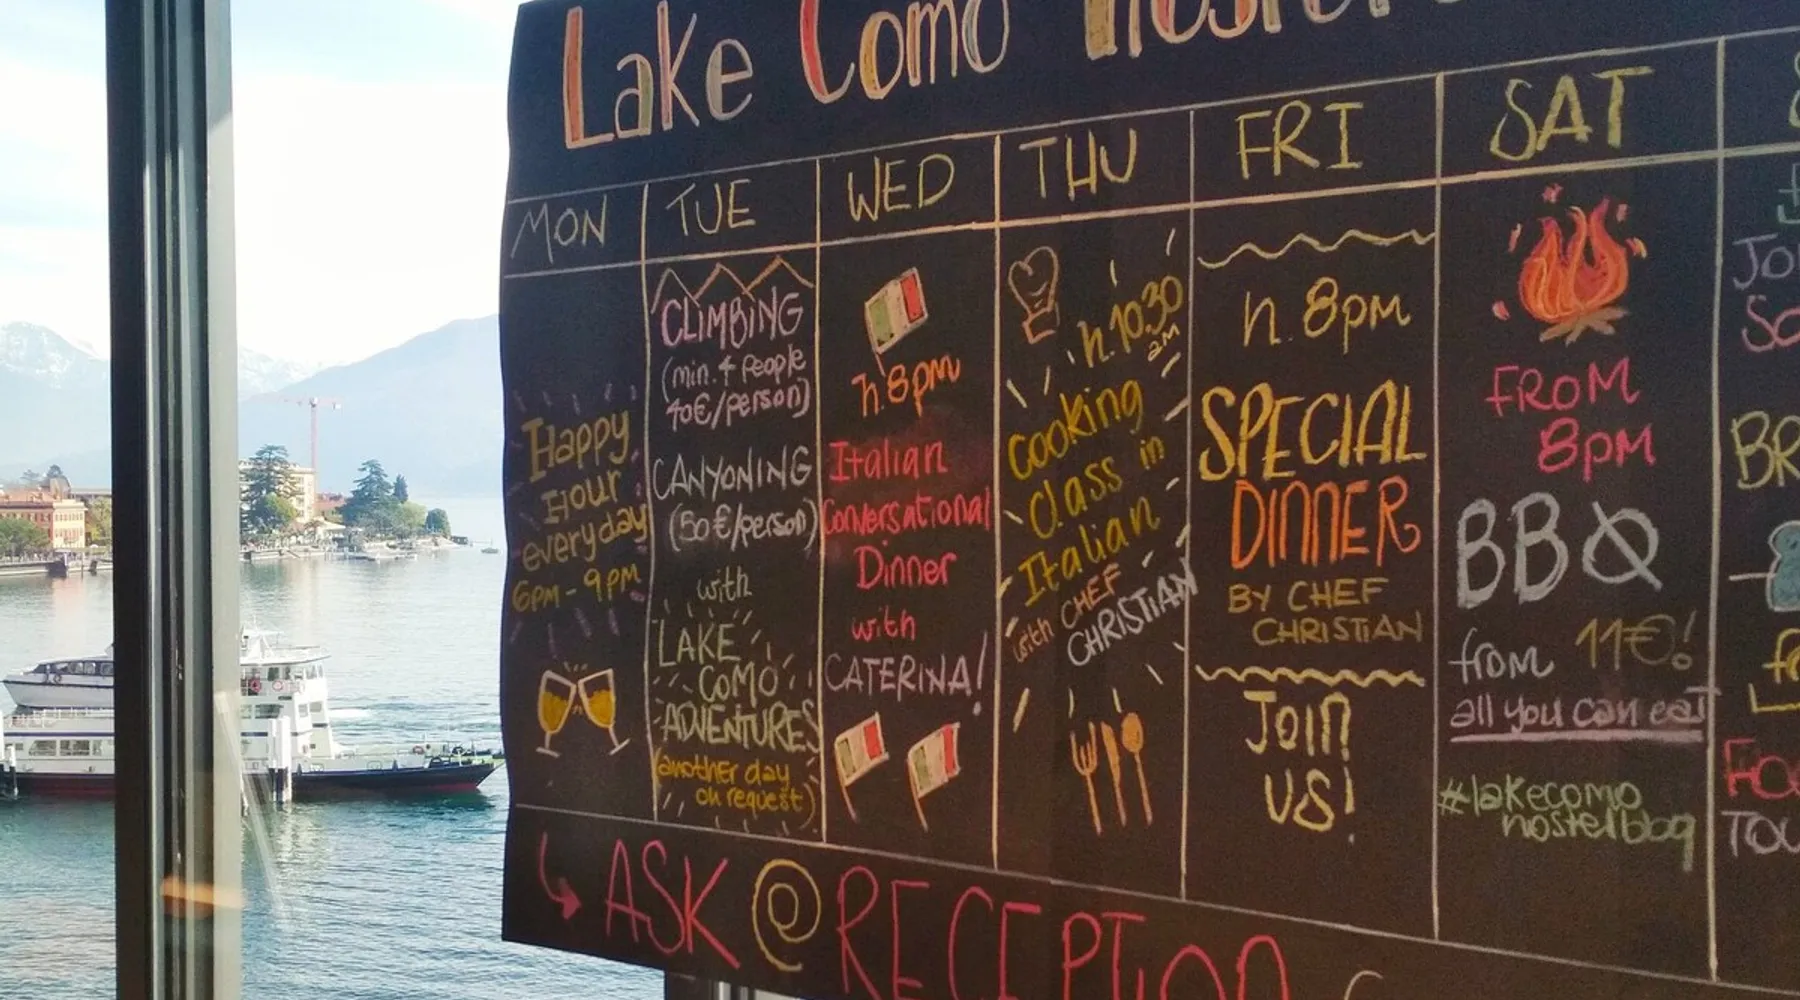 Lake Como Hostel
MON
TUE
WED
THU
FRI
SAT
Happy
Hour
everyday
6PM - 9PM
CLIMBING
(min. 4 people
40€/person)
CANYONING
(50€/person)
with
LAKE
COMO
ADVENTURES
(another day
on request)
h. 8pm
Italian
Conversational
Dinner
with
CATERINA!
h. 10.30
am
Cooking
Class in
Italian
with CHEF
CHRISTIAN
h. 8pm
SPECIAL
DINNER
BY CHEF
CHRISTIAN
JOIN
US!
FROM
8PM
BBQ
from 11€!
all you can eat
#lakecomo
hostelblog
ASK @ RECEPTION